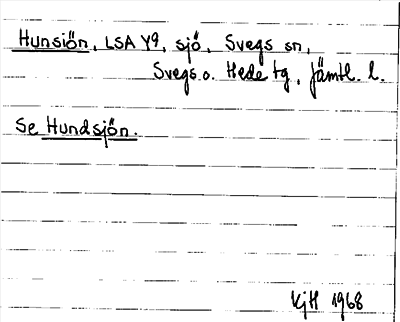 Hunsiön, LSA Y9, sjö, Svegs sn,
Svegs o. Hede tg, Jämtl. l.
Se Hundsjön.
KjH 1968